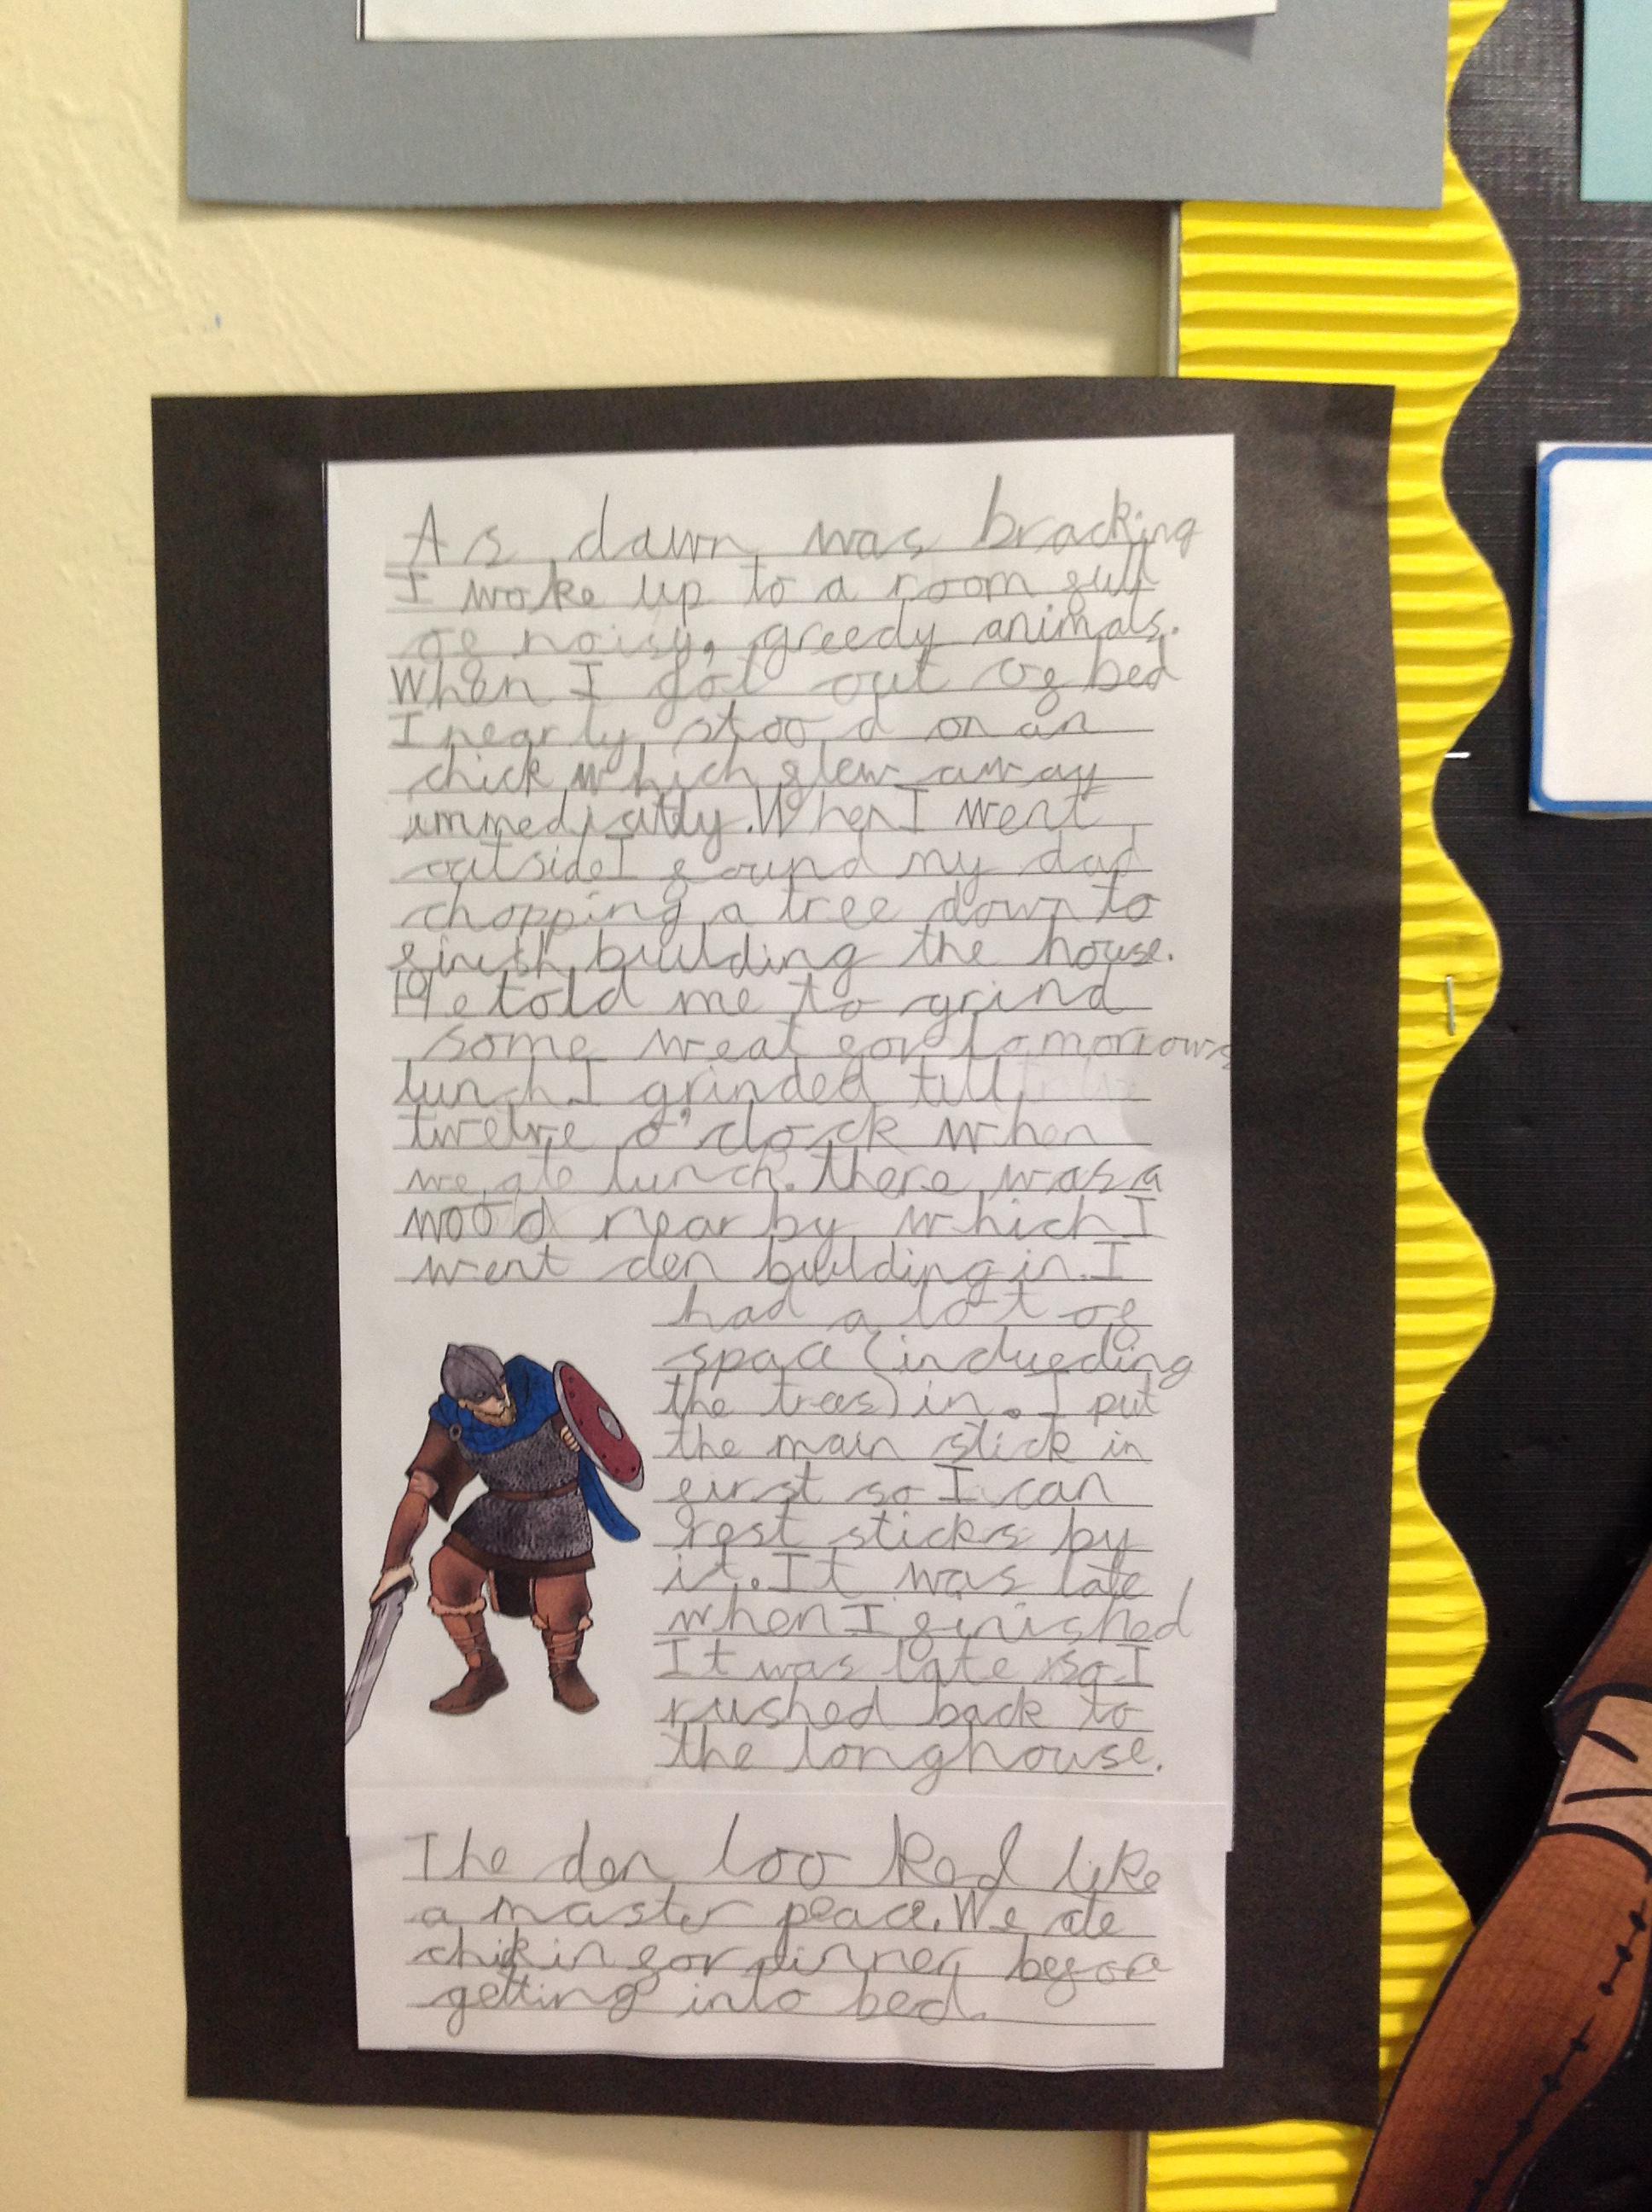 As dawn was bracking
I woke up to a room full
of noisy, greedy animals.
When I got out of bed
I nearly stood on an
chick which flew away
immediatly. When I went
outside I found my dad
chopping a tree down to
finish building the house.
He told me to grind
some weat for tomorrows
lunch. I grinded till
twelve o'clock when
we ate lunch. there was a
wood near by which I
went den building in. I
had a lot of
space (inclueding
the trees) in. I put
the main stick in
first so I can
rest sticks by
it. It was late
when I finished
It was late so I
rushed back to
the longhouse.
The den looked like
a master peace. We ate
chikin for dinner before
getting into bed.